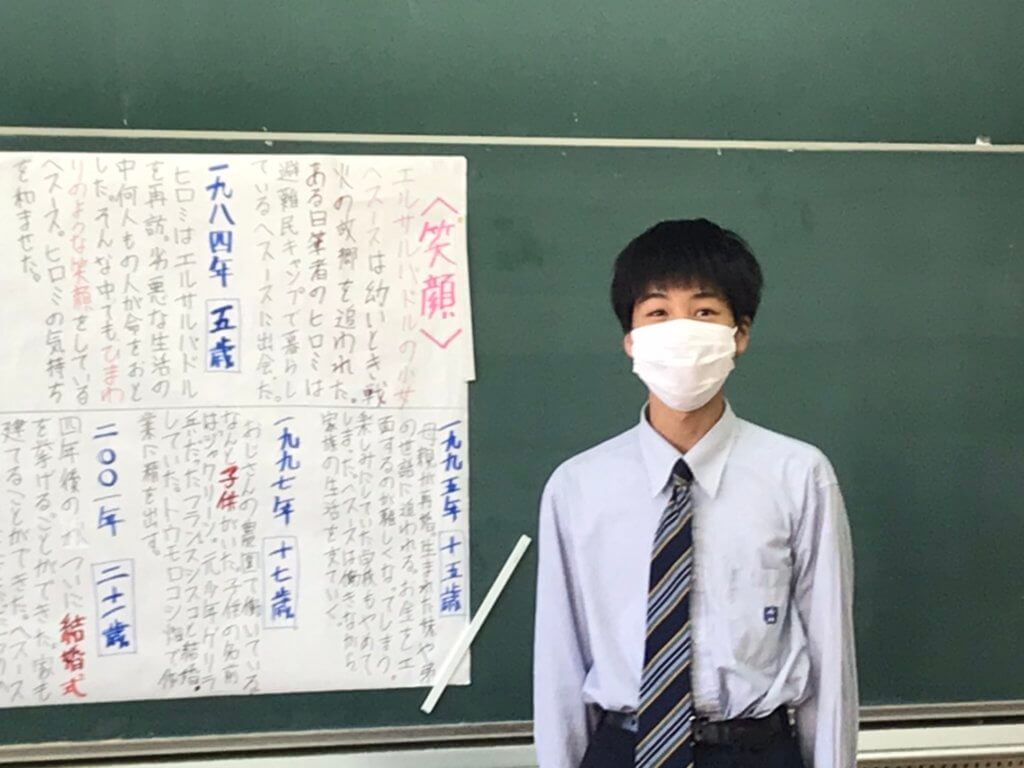 〈笑顔〉
エルサルバドルの少
ヘスースは幼いとき戦
火の故郷を追われた。
ある日筆者のヒロミは
避難民キャンプで暮らし
ているヘスースに出会った。
一九八四年 五歳
ヒロミはエルサルバドル
を再訪。劣悪な生活の
中何人もの人が命をおと
した。そんな中でもひまわ
りのような笑顔をしている
ヘスース。ヒロミの気持ち
を和ませた。
一九九五年 十五歳
母親が再婚。生まれた妹や弟
の世話に追われる。お金を工
面するのが難しくなってしまう。
楽しみにしていた学校もやめて
しまった。ヘスースは働きながら
家族の生活を支えていく。
一九九七年 十七歳
おじさんの農園で働いている
なんと子供がいた。子供の名前
はジャクリーン。元少年ゲリラ
兵だったフランスシスコと結婚
していた。トウモロコシ畑で作
業に精を出す。
二〇〇一年 二十一歳
四年後の ついに結婚式
を挙げることができた。家も
建てることができた。ヘスース